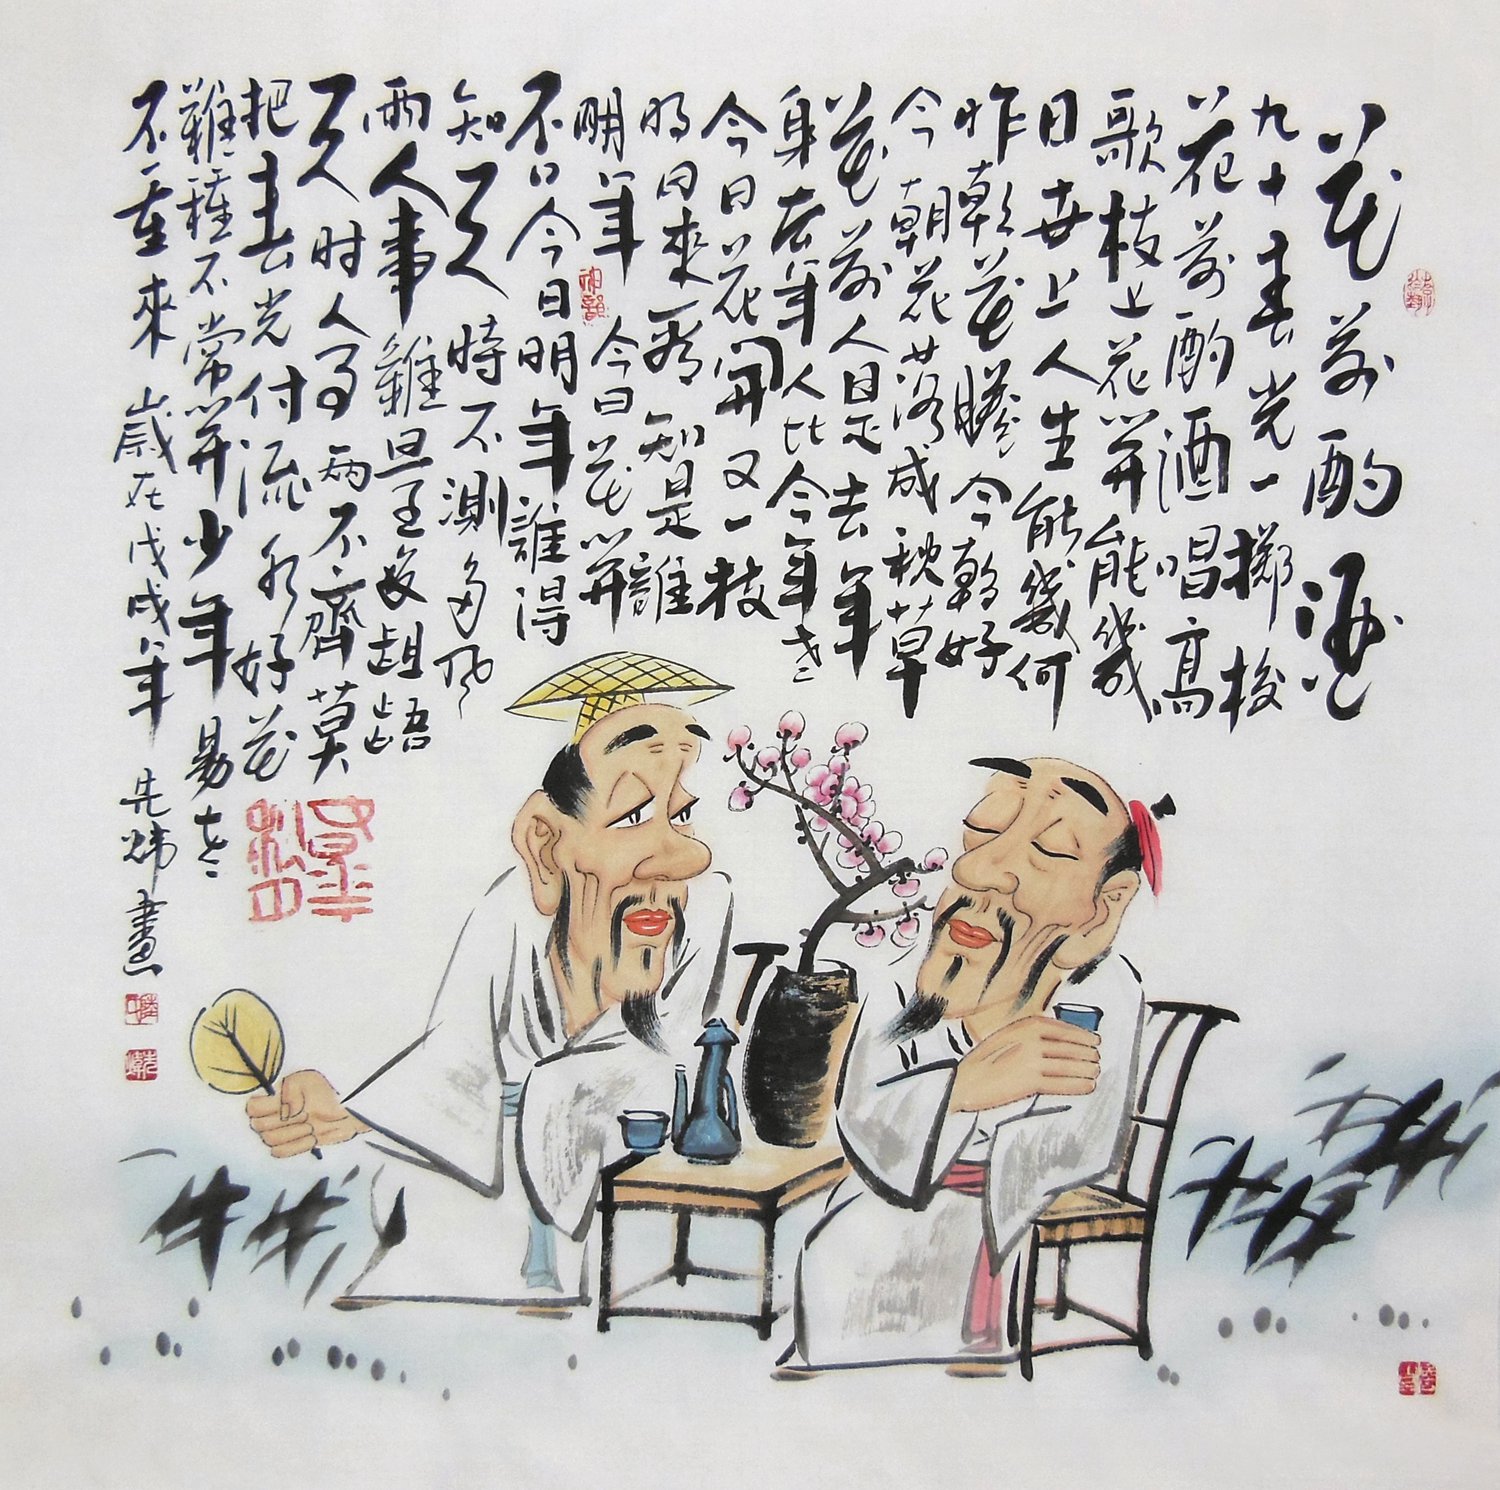 花前酌酒
九十春光一擲梭
花前酌酒唱高
歌枝上花開能幾
日世上人生能幾何
昨朝花勝今朝好
今朝花落成秋草
花前人是去年
身去年人比今年老
今日花開又一枝
明日來看知是誰
明年今日花開
否今日明年誰得
知天時不測多風
雨人事難量多齟齬
天时人事兩不齊莫
把春光付流水好花
難種不常開少年易老
不重來 歲在戊戌年 先煒畫
神韻